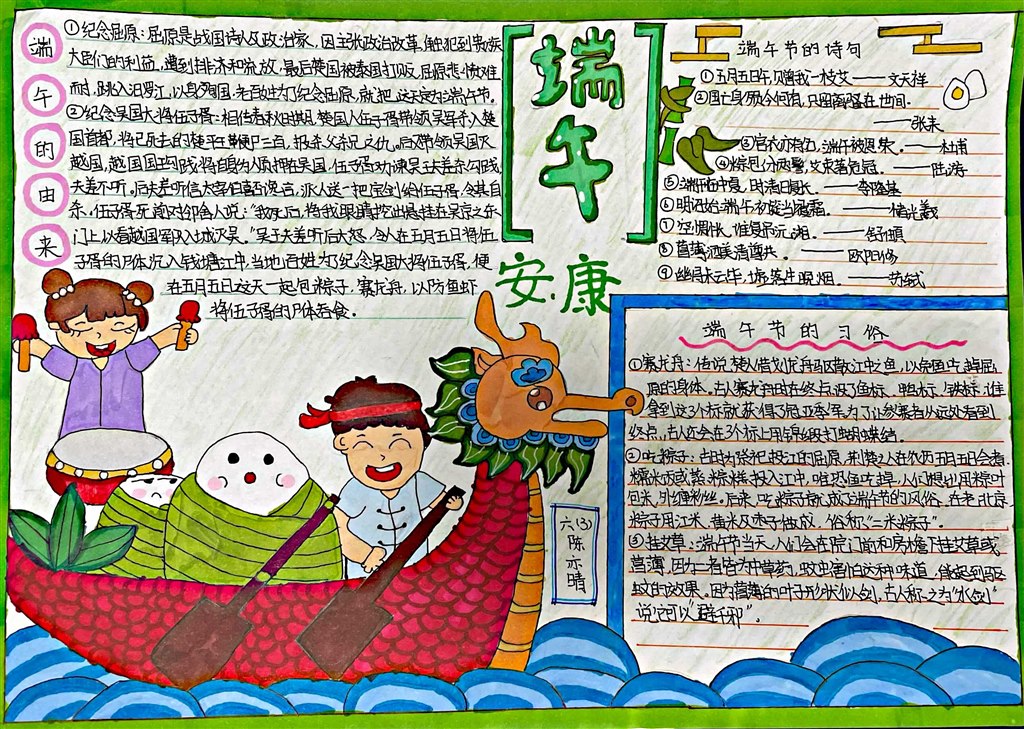 端午的由来
①纪念屈原：屈原是战国诗人及政治家，因主张政治改革，触犯到贵族
大臣们的利益，遭到排济和流放，最后楚国被秦国打败，屈原悲愤难
而，跳入汨罗江，以身殉国，老百姓为了纪念屈原，就把这天定为端午节。
②纪念吴国大将伍子胥：相传春秋时期，楚国人伍子胥带领吴军杀入楚
国首都，将已死去的楚平王鞭尸三百，报杀父杀兄之仇。后带领吴国灭
越国，越国国王勾践将自己为人质押给吴国，伍子胥劝谏吴王夫差杀勾践，
夫差不听。后夫差听信太宰伯嚭谗言，派人送一把宝剑给伍子胥，令其自
杀，伍子胥死前对邻舍人说："我死后，将我眼睛挖出悬挂在吴京之东
门上以看越国军队入城灭吴。"吴王夫差听后大怒，令人在五月五日将伍
子胥的尸体沉入钱塘江中，当地百姓为了纪念吴国大将伍子胥，便
在五月五日这天一起包粽子，赛龙舟，以防鱼虾
将伍子胥的尸体吞食.
端午
安康
端午节的诗句
①五月五日午，贈我一枝艾——文天祥
②国亡身殒今何有，只留离骚在世间.
——张耒
③宫衣亦有名，端午被恩荣.——杜甫
④粽包分两髻，艾束著危冠.——陆游
⑤端午临中夏，时清日复长.——李隆基
⑥明日给端午，初筵当履霜.——储光羲
⑦空惆怅，谁复吊沅湘.——舒頔
⑧菖蒲酒美清尊共.——欧阳修
⑨幽锝标云毕，墟落生晚烟.——苏轼
端午节的习俗
①赛龙舟：传说楚人借划龙舟驱散江中之鱼，以免鱼吃掉屈
原的身体.古人赛龙舟时在终点设了鱼标、鸭标、铁标，谁
拿到这3个标就获得了冠亚季军.为了让参赛者从远处看到
终点，古人还会在3个标上用锦缎打蝴蝶结.
②吃粽子：古时为祭祀投江的屈原，荆楚之人在农历五月五日会煮
糯米饭或蒸粽糕投入江中，唯恐鱼吃掉，人们想出用粽叶
包米，外缠彩丝。后来，吃粽子就成了端午节的风俗，在老北京，
粽子用江米、黄米及枣子做成，俗称"二米粽子"。
③挂艾草：端午节当天，人们会在院门前和房檐下挂艾草或
菖蒲，因为二者皆为中草药，蚊虫害怕这种味道，能起到驱
蚊的效果。因为菖蒲的叶子形状似剑，古人称之为"水剑"
说可以"辟千邪"。
六(3)
陈亦晴